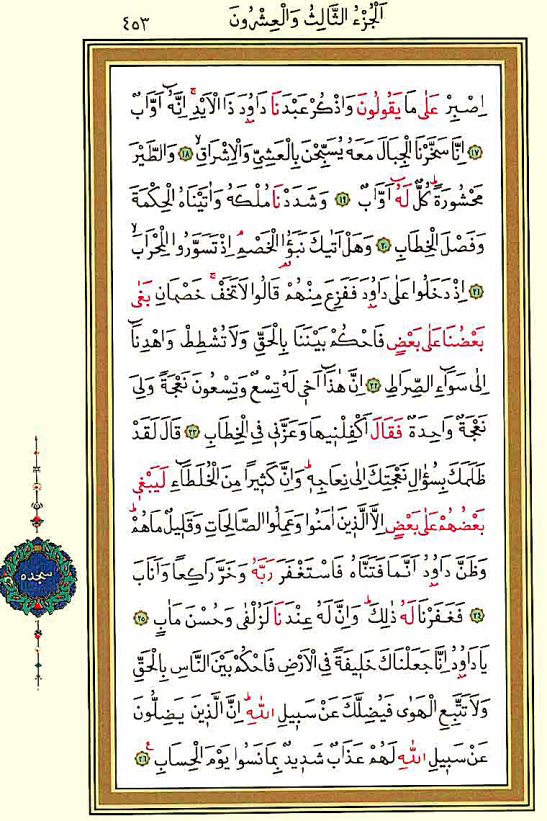 اَلْجُزْءُ الثَّالِثُ وَالْعِشْرُونَ
٤٥٣
اِصْبِرْ عَلٰى مَا يَقُولُونَ وَاذْكُرْ عَبْدَنَا دَاوُدَ ذَا الْاَيْدِۚ اِنَّهُٓ اَوَّابٌ
﴿١٧﴾ اِنَّا سَخَّرْنَا الْجِبَالَ مَعَهُ يُسَبِّحْنَ بِالْعَشِيِّ وَالْاِشْرَاقِۙ ﴿١٨﴾ وَالطَّيْرَ
مَحْشُورَةًۜ كُلٌّ لَهُٓ اَوَّابٌ ﴿١٩﴾ وَشَدَدْنَا مُلْكَهُ وَاٰتَيْنَاهُ الْحِكْمَةَ
وَفَصْلَ الْخِطَابِ ﴿٢٠﴾ وَهَلْ اَتٰيكَ نَبَؤُا الْخَصْمِۢ اِذْ تَسَوَّرُوا الْمِحْرَابَۙ
﴿٢١﴾ اِذْ دَخَلُوا عَلٰى دَاوُدَ فَفَزِعَ مِنْهُمْ قَالُوا لَا تَخَفْۚ خَصْمَانِ بَغٰى
بَعْضُنَا عَلٰى بَعْضٍ فَاحْكُمْ بَيْنَنَا بِالْحَقِّ وَلَا تُشْطِطْ وَاهْدِنَٓا
اِلٰى سَوَٓاءِ الصِّرَاطِ ﴿٢٢﴾ اِنَّ هٰذَٓا اَخٖي لَهُ تِسْعٌ وَتِسْعُونَ نَعْجَةً وَلِيَ
نَعْجَةٌ وَاحِدَةٌ فَقَالَ اَكْفِلْنٖيهَا وَعَزَّنٖي فِي الْخِطَابِ ﴿٢٣﴾ قَالَ لَقَدْ
ظَلَمَكَ بِسُؤَالِ نَعْجَتِكَ اِلٰى نِعَاجِهٖۜ وَاِنَّ كَثٖيرًا مِنَ الْخُلَطَٓاءِ لَيَبْغٖي
بَعْضُهُمْ عَلٰى بَعْضٍ اِلَّا الَّذٖينَ اٰمَنُوا وَعَمِلُوا الصَّالِحَاتِ وَقَلٖيلٌ مَا هُمْۜ
وَظَنَّ دَاوُدُ اَنَّمَا فَتَنَّاهُ فَاسْتَغْفَرَ رَبَّهُ وَخَرَّ رَاكِعًا وَاَنَابَ
﴿٢٤﴾ فَغَفَرْنَا لَهُ ذٰلِكَۜ وَاِنَّ لَهُ عِنْدَنَا لَزُلْفٰى وَحُسْنَ مَاٰبٍ ﴿٢٥﴾
يَا دَاوُدُ اِنَّا جَعَلْنَاكَ خَلٖيفَةً فِي الْاَرْضِ فَاحْكُمْ بَيْنَ النَّاسِ بِالْحَقِّ
وَلَا تَتَّبِعِ الْهَوٰى فَيُضِلَّكَ عَنْ سَبٖيلِ اللّٰهِۜ اِنَّ الَّذٖينَ يَضِلُّونَ
عَنْ سَبٖيلِ اللّٰهِ لَهُمْ عَذَابٌ شَدٖيدٌ بِمَا نَسُوا يَوْمَ الْحِسَابِ ﴿٢٦﴾
سجده